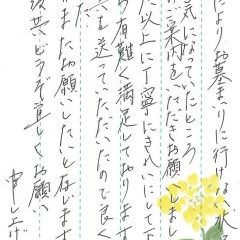 により お墓まいりに行けない状
気になっていたところ
ご案内をいただきお願いしまし
た以上に丁寧にきれいにして下
り有難く満足しております
真も送っていただいたので良く
た
またお願いしたいと存じます
後共どうぞ宜しくお願い
申し上げ